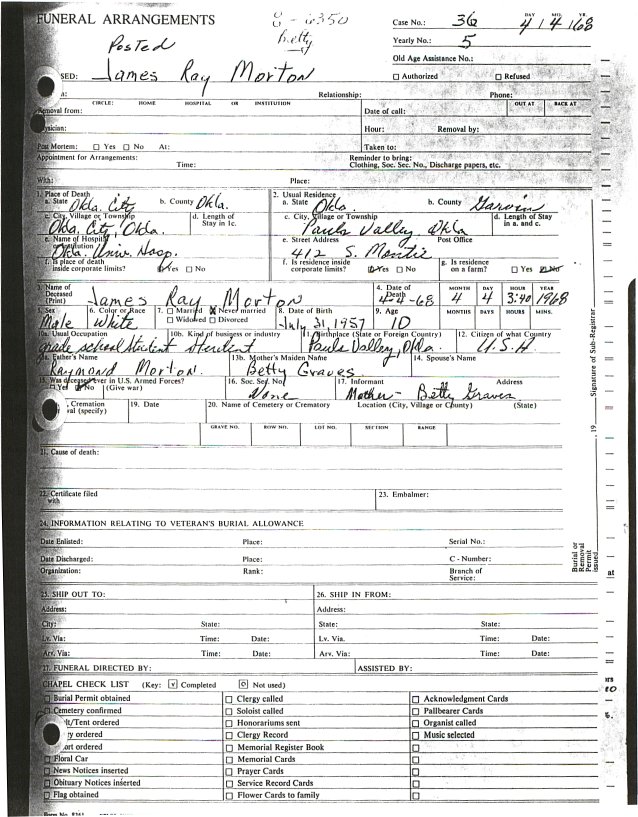 FUNERAL ARRANGEMENTS
Betty
Case No.: 36
DAY MO. YR.
4 4 68
Posted
Yearly No.: 5
Old Age Assistance No.:
SED: James Ray Morton
Authorized Refused
Relationship: Phone:
CIRCLE: HOME HOSPITAL OR INSTITUTION
OUT AT BACK AT
moval from: Date of call:
ysician: Hour: Removal by:
Post Mortem: Yes No At: Taken to:
Appointment for Arrangements: Time:
Reminder to bring:
Clothing, Soc. Sec. No., Discharge papers, etc.
With: Place:
1. Place of Death
a. State Okla. City b. County Okla.
c. City, Village or Township Okla. City, Okla.
d. Length of Stay in 1c.
e. Name of Hospital
stitution Okla. Univ. Hosp.
f. Is place of death inside corporate limits? Yes No
2. Usual Residence
a. State Okla. b. County Garvin
c. City, Village or Township Pauls Valley, Okla
d. Length of Stay in a. and c.
e. Street Address 412 S. Post Office
f. Is residence inside corporate limits? Yes No
g. Is residence on a farm? Yes No
3. Name of Deceased (Print) James Ray Morton
4. Date of Death 4-4-68
MONTH DAY HOUR YEAR
4 4 3:40 1968
5. Sex Male
6. Color or Race White
7. Married Never married
Widowed Divorced
8. Date of Birth July 31, 1957
9. Age 10
MONTHS DAYS HOURS MINS.
10a. Usual Occupation grade school student
10b. Kind of business or industry Student
11. Birthplace (State or Foreign Country) Pauls Valley, Okla.
12. Citizen of what Country U.S.A
13a. Father's Name Raymond Morton
13b. Mother's Maiden Name Betty Graves
14. Spouse's Name
15. Was deceased ever in U.S. Armed Forces?
Yes No (Give war)
16. Soc. Sec. No. None
17. Informant Address
Mother- Betty Graves
, Cremation
val (specify)
19. Date
20. Name of Cemetery or Crematory Location (City, Village or County) (State)
GRAVE NO. ROW NO. LOT NO. SECTION RANGE
21. Cause of death:
22. Certificate filed with
23. Embalmer:
24. INFORMATION RELATING TO VETERAN'S BURIAL ALLOWANCE
Date Enlisted: Place: Serial No.:
Date Discharged: Place: C - Number:
Organization: Rank: Branch of Service:
25. SHIP OUT TO: 26. SHIP IN FROM:
Address: Address:
City: State: State: State:
Lv. Via: Time: Date: Lv. Via. Time: Date:
Arv. Via: Time: Date: Arv. Via: Time: Date:
27. FUNERAL DIRECTED BY: ASSISTED BY:
CHAPEL CHECK LIST (Key: √ Completed O Not used)
Burial Permit obtained Clergy called Acknowledgment Cards
Cemetery confirmed Soloist called Pallbearer Cards
lt/Tent ordered Honorariums sent Organist called
ry ordered Clergy Record Music selected
ort ordered Memorial Register Book
Floral Car Memorial Cards
News Notices inserted Prayer Cards
Obituary Notices inserted Service Record Cards
Flag obtained Flower Cards to family
Signature of Sub-Registrar
19
Burial or
Removal
Permit
issued
at